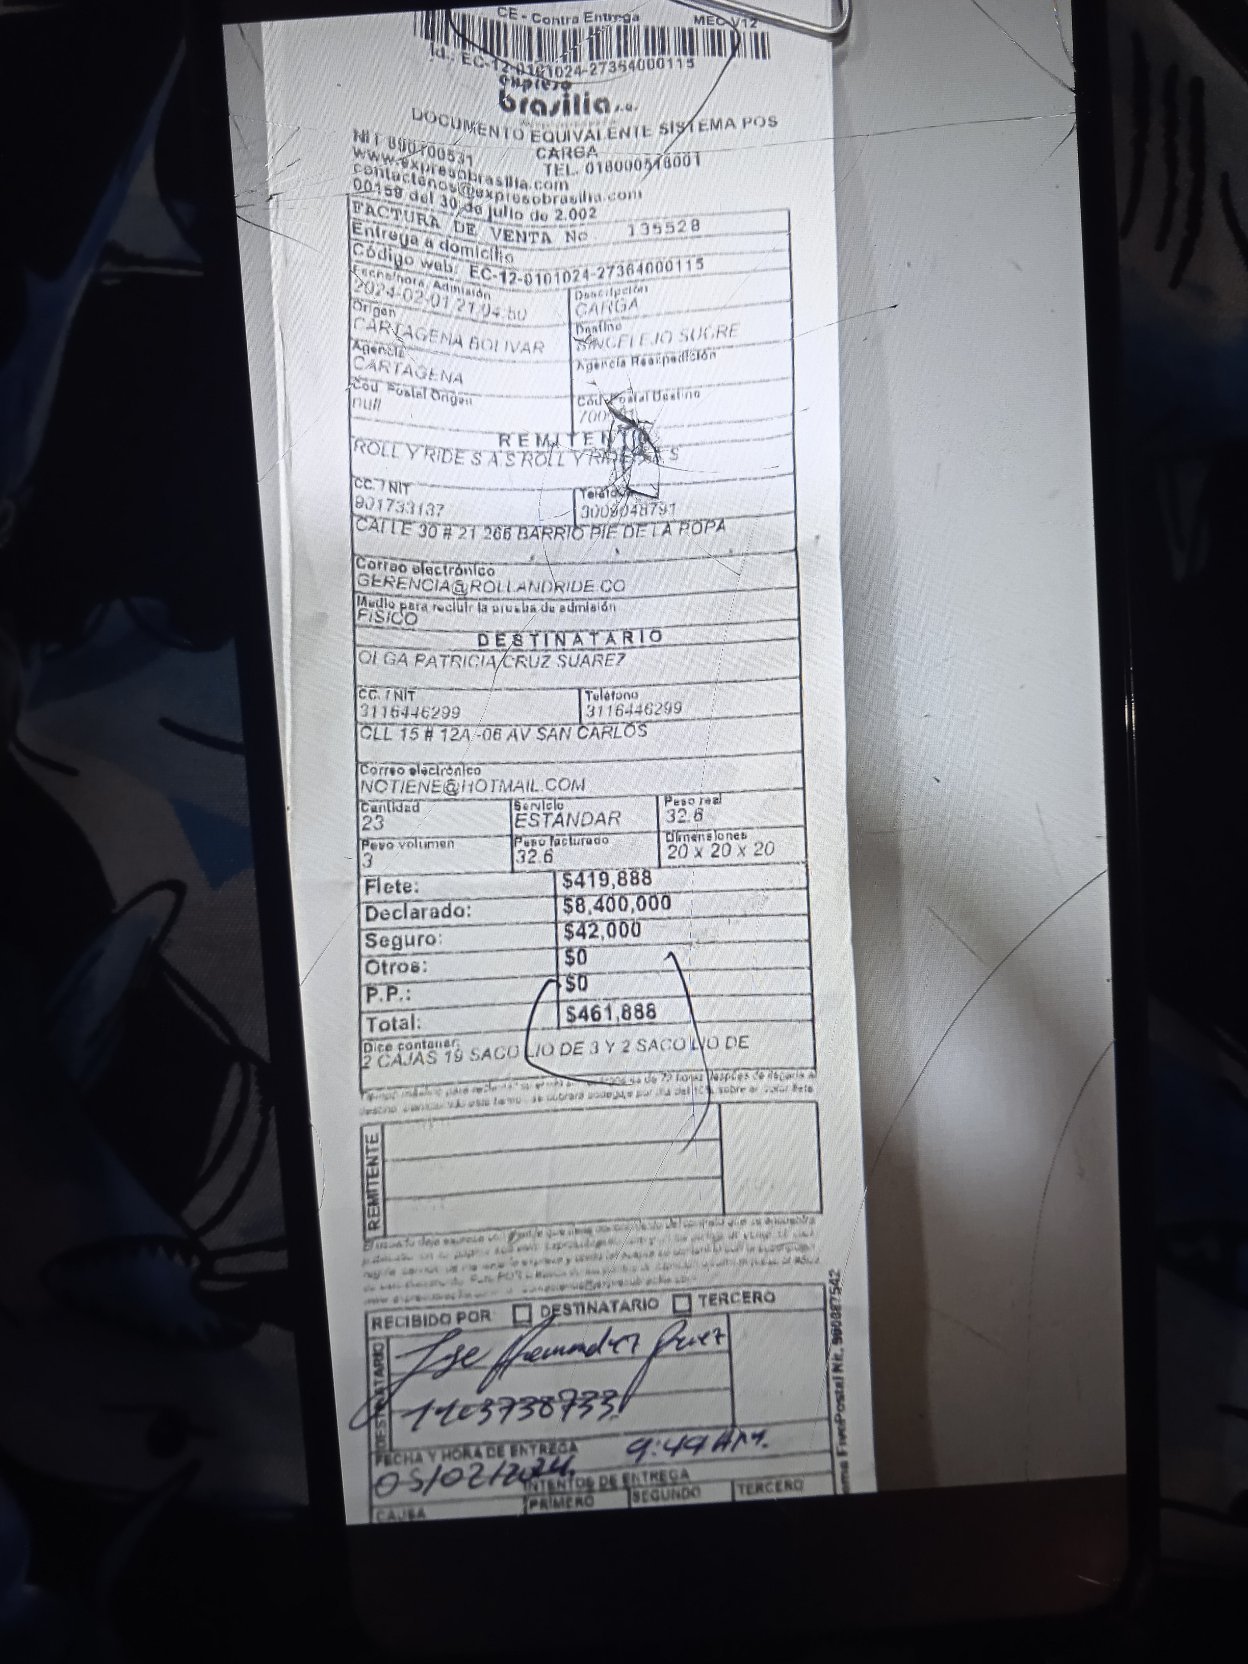 CE - Contra Entrega MEC-V12
Id.: EC-12-0101024-27364000115
expreso
brasilia s.a.
DOCUMENTO EQUIVALENTE SISTEMA POS
CARGA
NIT 890100531 TEL. 018000518001
www.expresobrasilia.com
contactenos@expresobrasilia.com
00158 del 30 de julio de 2.002
FACTURA DE VENTA No 135528
Entrega a domicilio
Código web: EC-12-0101024-27364000115
Fecha/hora Admisión Descripción
2024-02-01 21:04:50 CARGA
Origen Destino
CARTAGENA BOLIVAR SINCELEJO SUCRE
Agencia Agencia Reexpedición
CARTAGENA
Cód. Postal Origen Cód. Postal Destino
null 700
REMITENTE
ROLL Y RIDE S.A.S ROLL Y RIDE S.A.S
CC. / NIT Teléfono
901733137 3009048791
CALLE 30 # 21 266 BARRIO PIE DE LA POPA
Correo electrónico
GERENCIA@ROLLANDRIDE.CO
Medio para recibir la prueba de admisión
FISICO
DESTINATARIO
OLGA PATRICIA CRUZ SUAREZ
CC. / NIT Teléfono
3116446299 3116446299
CLL 15 # 12A -06 AV SAN CARLOS
Correo electrónico
NOTIENE@HOTMAIL.COM
Cantidad Servicio Peso real
23 ESTANDAR 32.6
Peso volumen Peso facturado Dimensiones
3 32.6 20 x 20 x 20
Flete: $419,888
Declarado: $8,400,000
Seguro: $42,000
Otros: $0
P.P.: $0
Total: $461,888
Dice contener:
2 CAJAS 19 SACO LIO DE 3 Y 2 SACO LIO DE
REMITENTE
RECIBIDO POR: DESTINATARIO TERCERO
DESTINATARIO
Jose Hernandez
1103738733
FECHA Y HORA DE ENTREGA 9:49 AM.
05/02/2024
INTENTOS DE ENTREGA
CAUSA PRIMERO SEGUNDO TERCERO